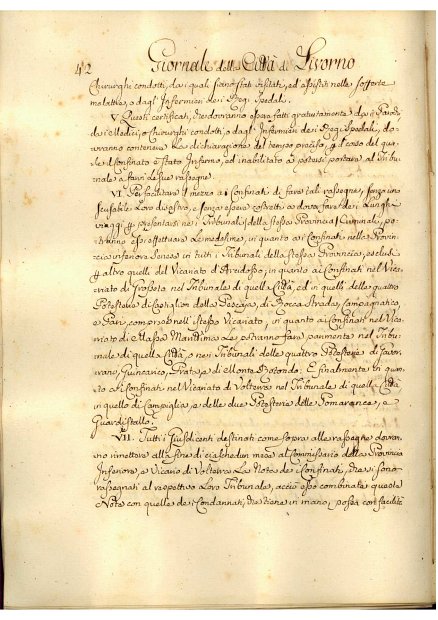 42 Giornale della Città di Livorno
Chirurghi condotti, da i quali siano stati visitati, ed assistiti nelle sofferte
malattie, o dagl'Infermieri dei Regi Spedali.
V. Questi certificati, che dovranno esser fatti gratuitamente da i Parochi,
dai Medici, o Chirurghi condotti, o dagl'Infermieri dei Regi Spedali, do-
vranno contenere la dichiarazione del tempo preciso, nel corso del qua-
le il Confinato è stato Infermo, ed inabilitato a potersi portare al Tribu-
nale a farvi le sue rassegne.
VI. Per facilitare il mezzo a i Confinati di fare tali rassegne, senza un
sensibile loro disastro, e senza essere costretti a dover fare dei lunghi
viaggi per presentarsi nei Tribunali della stessa Provincia Criminali, po-
tranno essi effettuare le medesime, in quanto a i Confinati nella Provin-
cia inferiore Senese in tutti i Tribunali della stessa Provincia, esclusi
per altro quelli del Vicariato di Arcidosso, in quanto ai Confinati nel Vica-
riato di Grosseto nel Tribunale di quella Città, ed in quelli delle quattro
Potesterie di Castiglion della Pescaja, di Rocca Strada, Campagnatico,
e Pari, compresi nell'istesso Vicariato, in quanto ai Confinati nel Vica-
riato di Massa Marittima le potranno fare parimente nel Tribu-
nale di quella Città, o nei Tribunali delle quattro Potesterie di Gavor-
rano, Giuncarico, Prata, e di Monte Rotondo. E finalmente in quan-
to ai Confinati nel Vicariato di Volterra nel Tribunale di quella Città
in quello di Campiglia, e delle due Potesterie delle Pomarance, e
Guardistallo.
VII. Tutti i Giusdicenti destinati come sopra alle rassegne dovran-
no rimettere alla fine di ciaschedun mese al Commissario della Provincia
Inferiore, e Vicario di Volterra la Nota dei Confinati, che si sono
rassegnati al respettivo loro Tribunale, acciò esso combinate queste
Note con quelle dei Condannati, che tiene in mano, possa con facilità